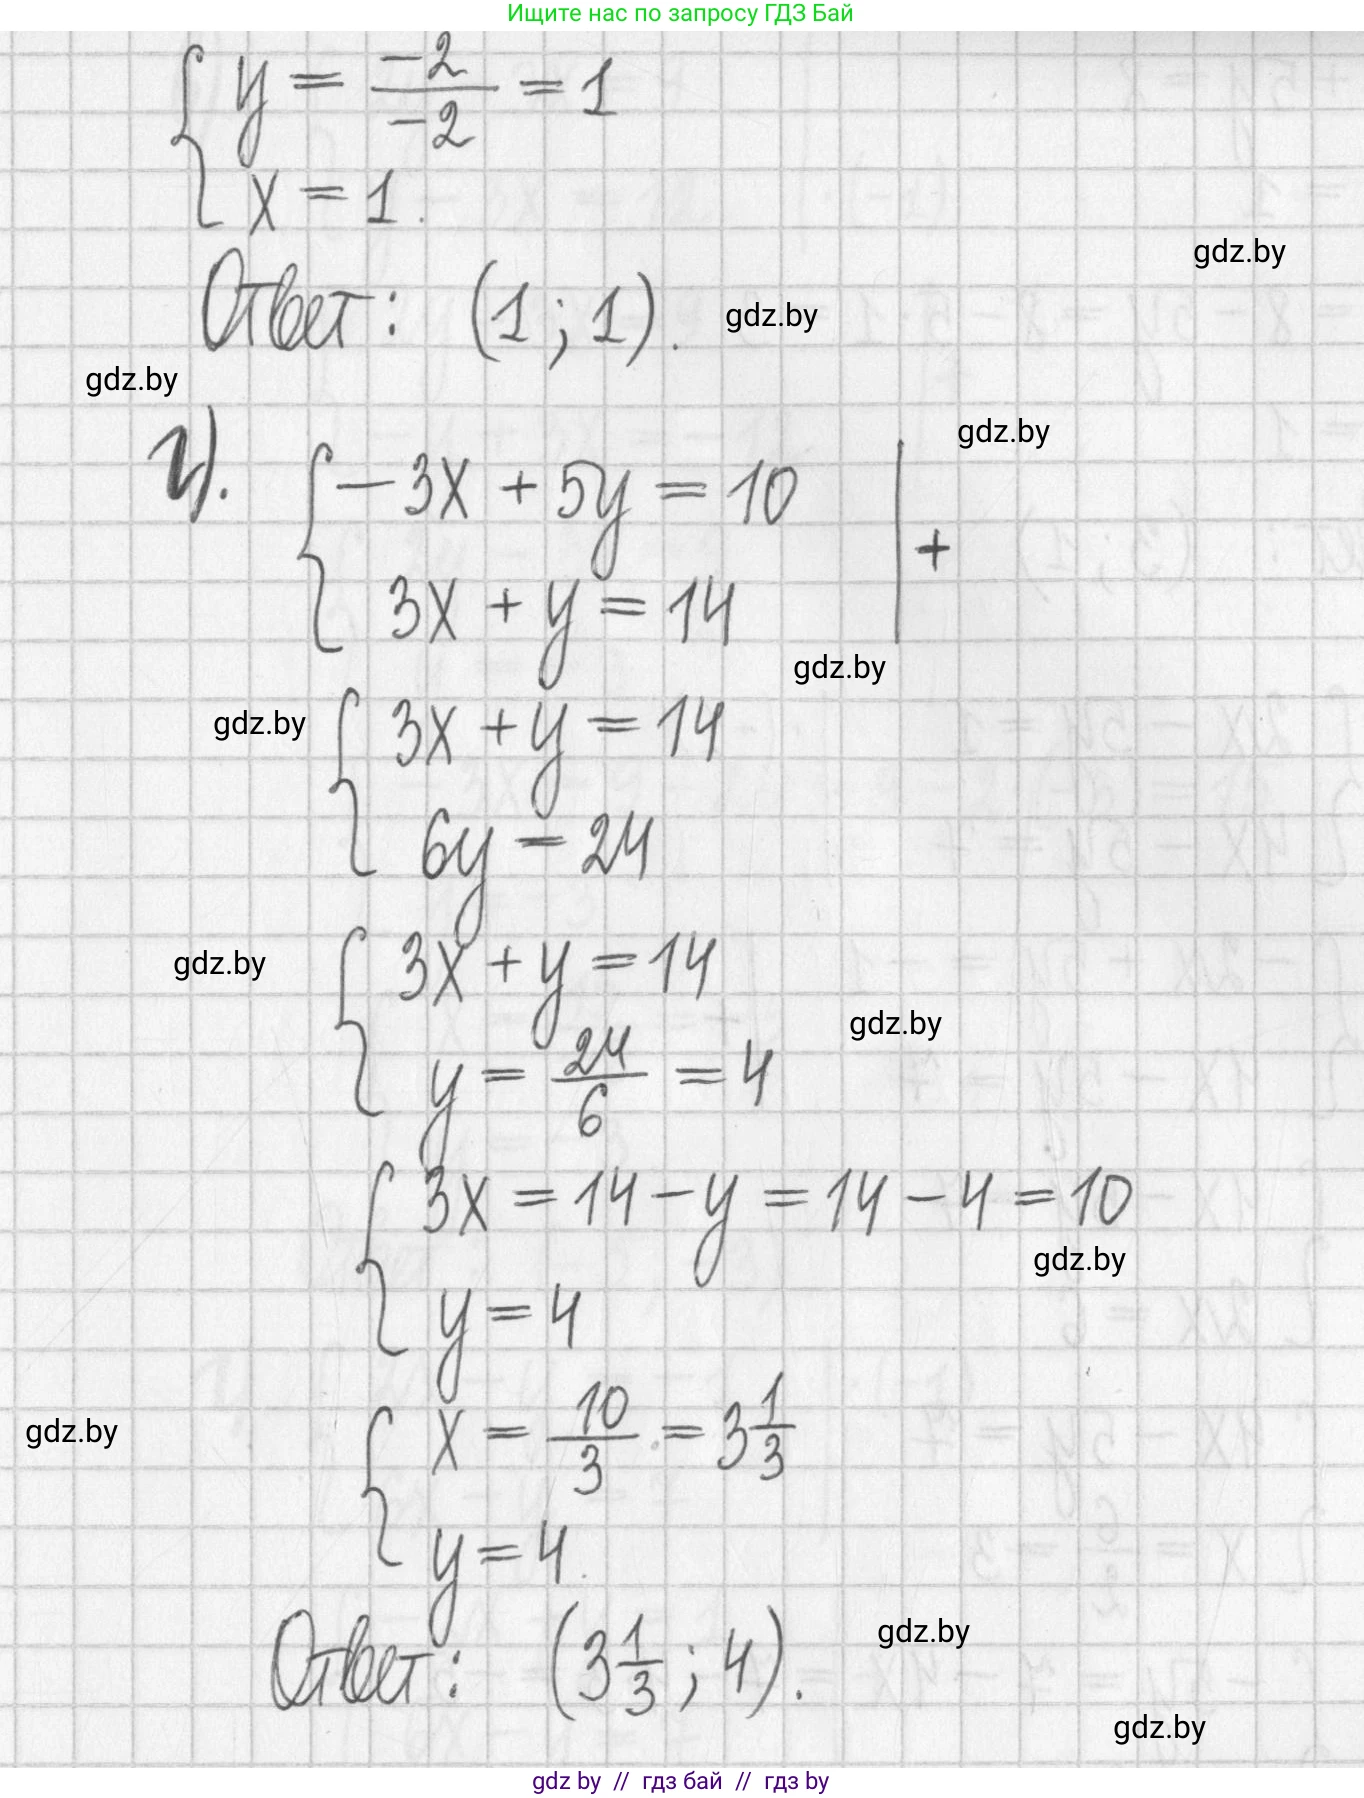 Ищите нас по запросу ГДЗ Бай
y = -2/-2 = 1
x = 1.
Ответ: (1; 1).
gdz.by
gdz.by
gdz.by
г). -3x + 5y = 10
gdz.by
+
3x + y = 14
gdz.by
gdz.by
3x + y = 14
6y = 24
gdz.by
3x + y = 14
gdz.by
y = 24/6 = 4
3x = 14 - y = 14 - 4 = 10
gdz.by
y = 4
gdz.by
x = 10/3 = 3 1/3
y = 4.
gdz.by
Ответ: (3 1/3; 4).
gdz.by
gdz by // гдз бай // гдз by